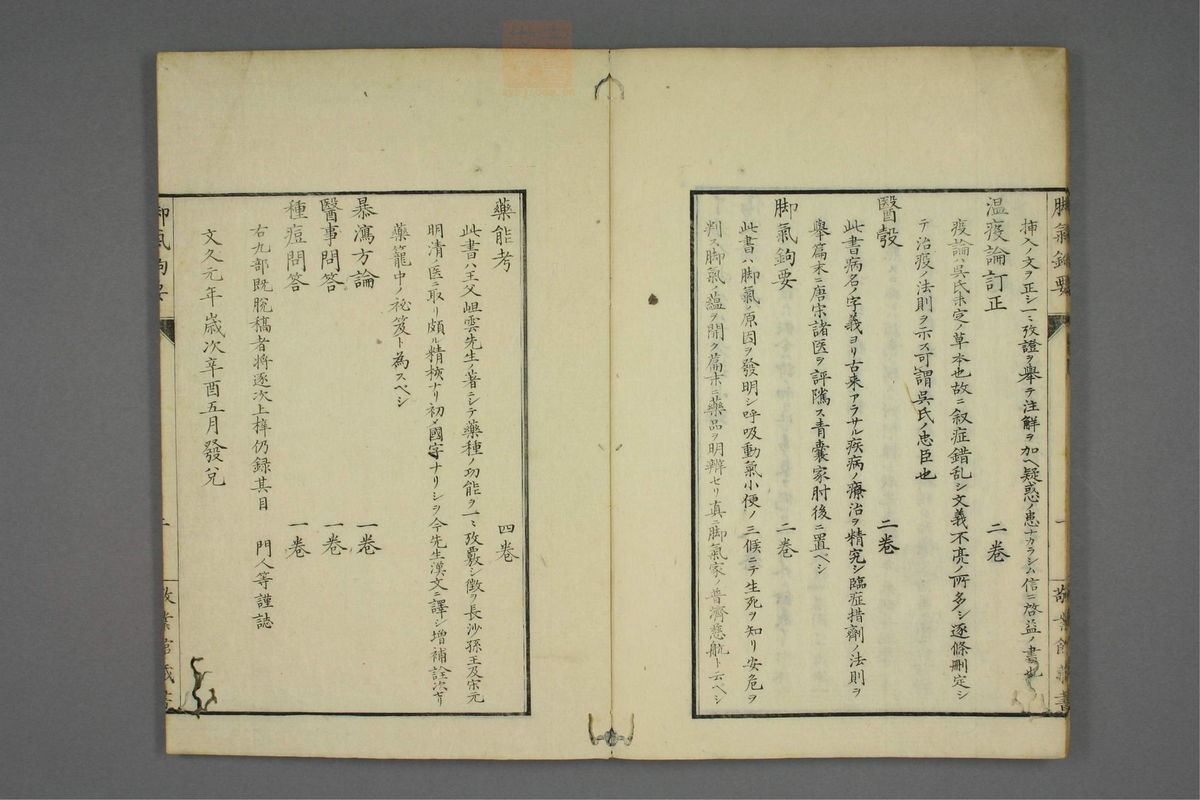 挿入ノ文ヲ正シ一〻攷證ヲ舉テ注觧ヲ加ヘ疑惑ノ患ナカラシム信ニ啓益ノ書也
温疫論訂正 二卷
疫論ハ呉氏未定ノ草本也故ニ叙症錯乱シ文義不亮ノ所多シ逐條刪定シ
テ治疫ノ法則ヲ示ス可謂呉氏ノ忠臣也
醫彀 二卷
此書病名ノ字義ヨリ古来アラサル疾病ノ療治ヲ精究シ臨症措劑ノ法則ヲ
舉篇末ニ唐宗諸医ヲ評隲ス青嚢家肘後ニ置ベシ
脚氣鉤要 二卷
此書ハ脚氣ノ原因ヲ發明シ呼吸動氣小便ノ三候ニテ生死ヲ知リ安危ヲ
判ス脚氣ノ蘊ヲ開ク篇末ニ藥品ヲ明辨セリ真ニ脚氣家ノ普濟慈航ト云ベシ
藥能考 四卷
此書ハ王父岨雲先生ノ著ニシテ藥種ノ功能ヲ一〻攷覈シ徴ヲ長沙孫王及宋元
明清ノ医ニ取リ頗ル精核ナリ初メ國字ナリシヲ今先生漢文ニ譯シ増補詮次セリ
藥籠中ノ祕笈ト為スベシ
暴瀉方論 一卷
醫事問答 一卷
種痘問答 一卷
右九部既脱稿者將逐次上梓仍録其目 門人等謹誌
文久元年歳次辛酉五月發兌